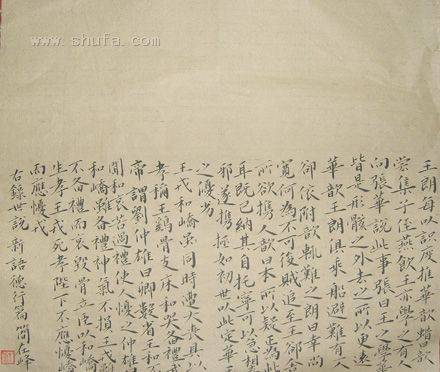 www.shufa.com
王朗每以識度推華歆蜡歆
嘗集子侄燕飲王亦學之有人
向張華說此事張曰王之學華
皆是形骸之外去之所以更遠
華歆王朗俱乘船避難有人
卻依附歆輒難之朗曰幸尚
寬何為不可後賊追至王卻舍
所欲攜人歆曰本所以疑正為此
耳既已納其自托寧可以急相棄
邪遂攜拯如初世以此定華王
之優劣
王戎和嶠同時遭大喪具以
孝稱王鷄骨支床和哭备禮武
帝謂劉仲雄曰卿數省王和不
聞和哀苦過禮使人憂之仲雄曰
和嶠雖备禮神氣不損王戎雖
不备禮而哀毀骨立臣以和嶠
生孝王戎死孝陛下不應憂嶠
而應憂戎
右錄世說新語德行篇 簡在峰